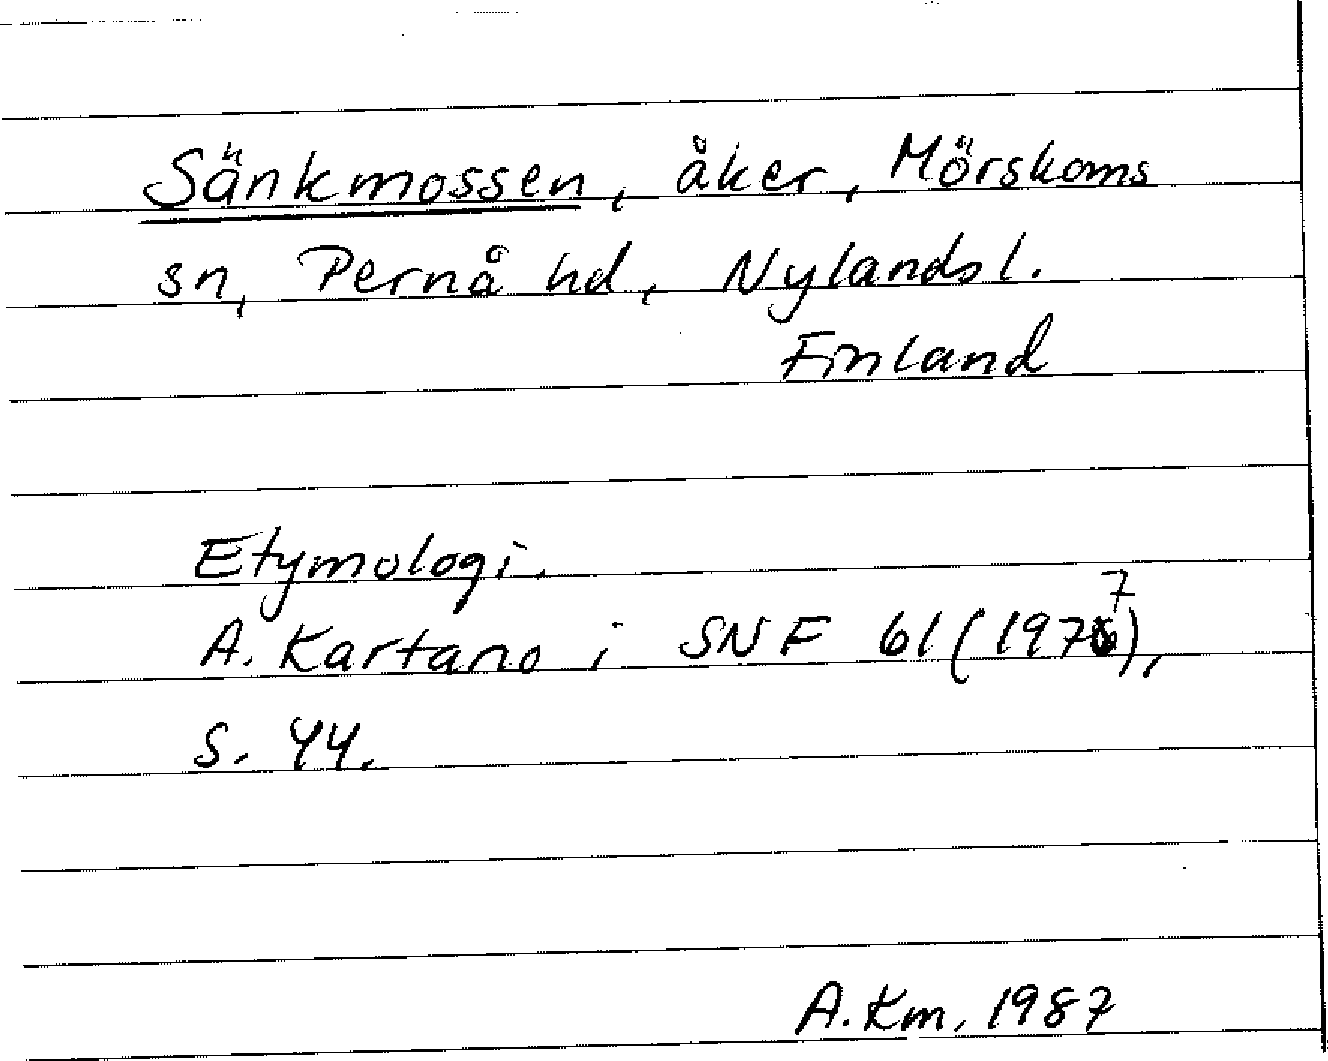 Sänkmossen, åker, Mörskoms
sn, Pernå hd, Nylands l.
Finland
Etymologi.
A. Kartano i SNF 61 (1977),
s. 44.
A. Km. 1987